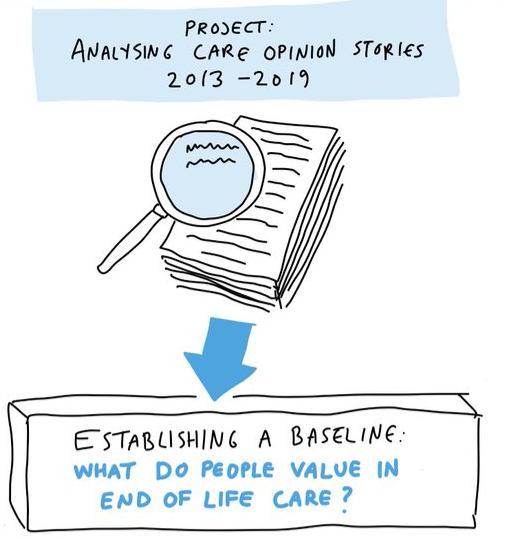 PROJECT:
ANALYSING CARE OPINION STORIES
2013 - 2019
ESTABLISHING A BASELINE:
WHAT DO PEOPLE VALUE IN
END OF LIFE CARE?